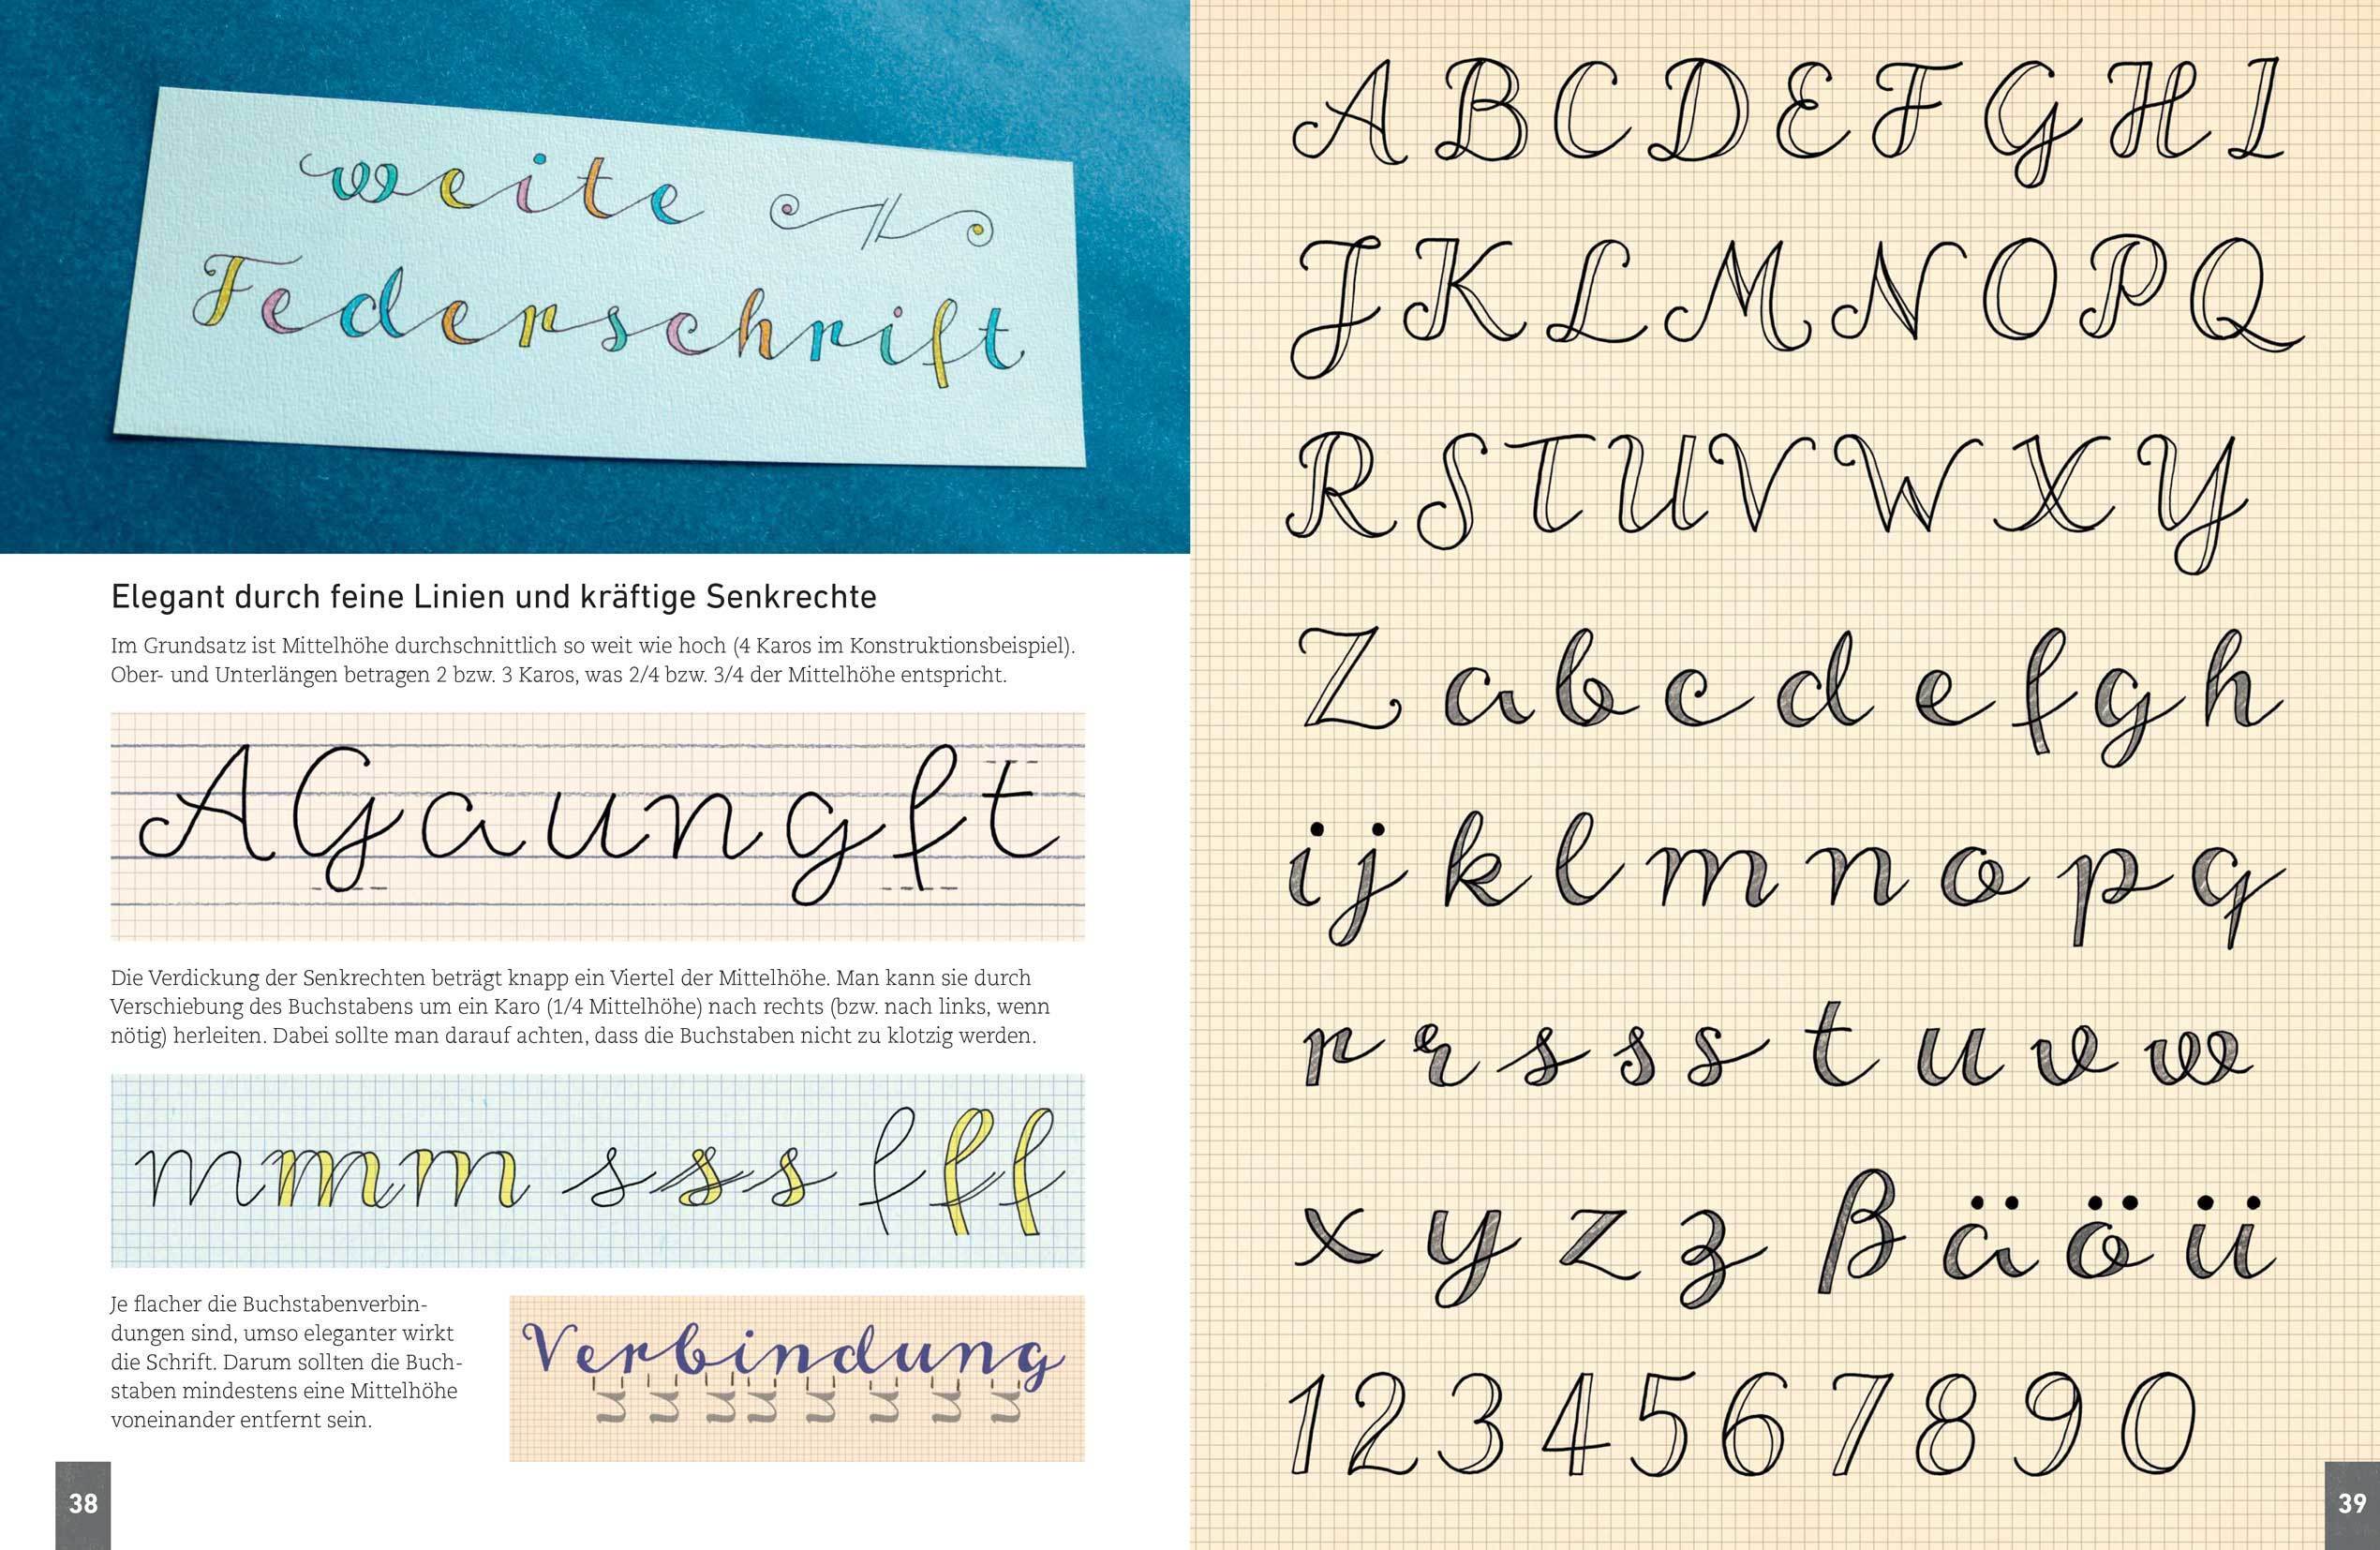 weite
Federschrift
Elegant durch feine Linien und kräftige Senkrechte
Im Grundsatz ist Mittelhöhe durchschnittlich so weit wie hoch (4 Karos im Konstruktionsbeispiel).
Ober- und Unterlängen betragen 2 bzw. 3 Karos, was 2/4 bzw. 3/4 der Mittelhöhe entspricht.
A G a u n g f t
Die Verdickung der Senkrechten beträgt knapp ein Viertel der Mittelhöhe. Man kann sie durch
Verschiebung des Buchstabens um ein Karo (1/4 Mittelhöhe) nach rechts (bzw. nach links, wenn
nötig) herleiten. Dabei sollte man darauf achten, dass die Buchstaben nicht zu klotzig werden.
m m m s s s f f f
Je flacher die Buchstabenverbin-
dungen sind, umso eleganter wirkt
die Schrift. Darum sollten die Buch-
staben mindestens eine Mittelhöhe
voneinander entfernt sein.
Verbindung
n n n n n n n n
38
A B C D E F G H I
J K L M N O P Q
R S T U V W X Y
Z a b c d e f g h
i j k l m n o p q
r r s s s t u v w
x y z z ß ä ö ü
1 2 3 4 5 6 7 8 9 0
39